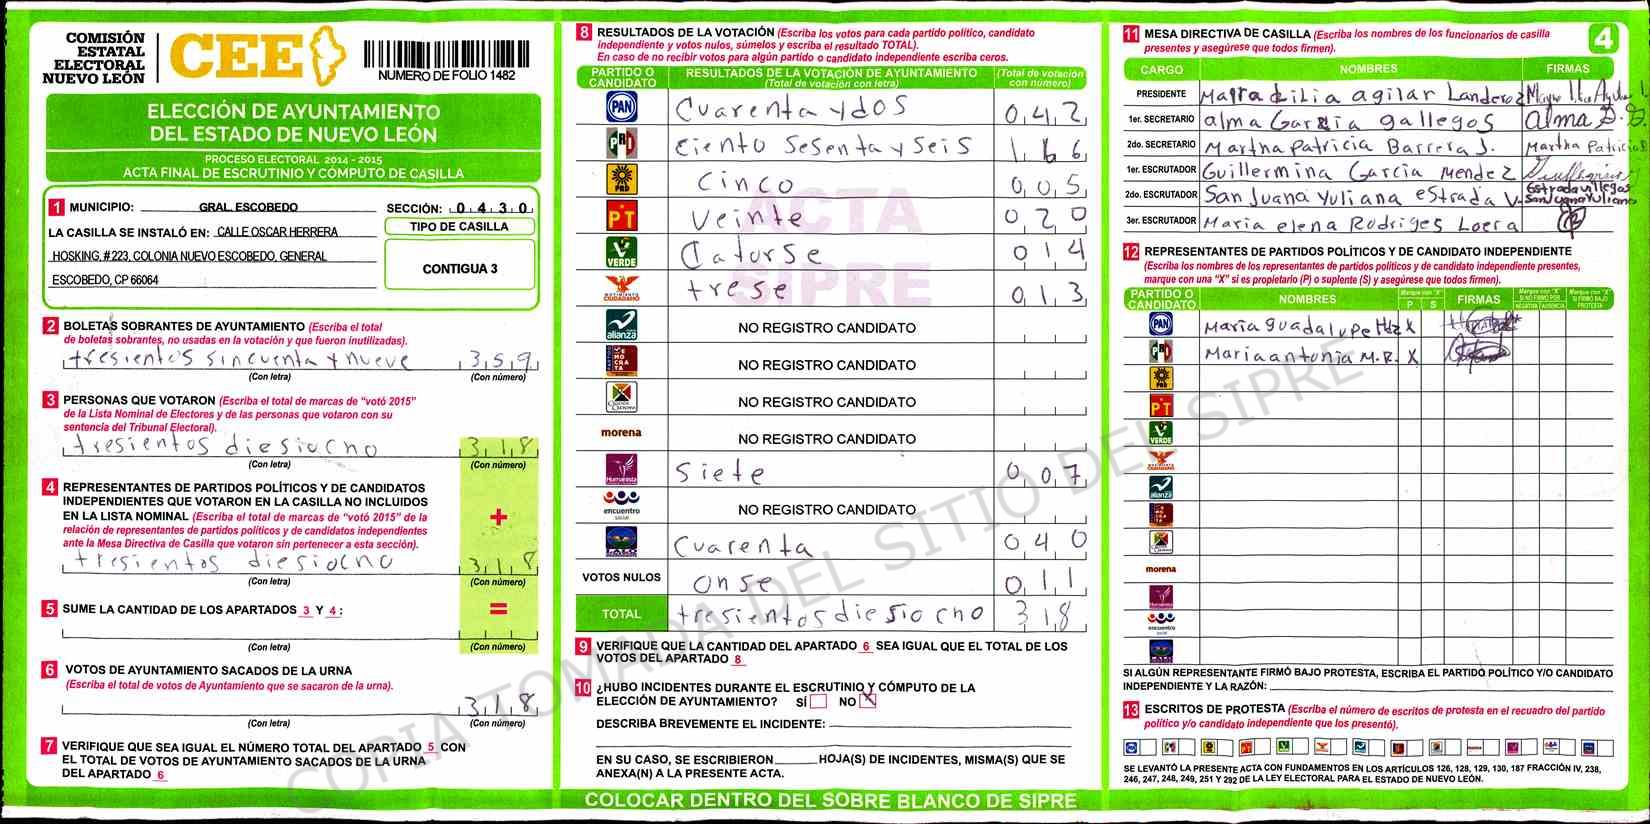 COMISIÓN
ESTATAL
ELECTORAL
NUEVO LEÓN
CEE
NUMERO DE FOLIO 1482
ELECCIÓN DE AYUNTAMIENTO
DEL ESTADO DE NUEVO LEÓN
PROCESO ELECTORAL 2014 - 2015
ACTA FINAL DE ESCRUTINIO Y CÓMPUTO DE CASILLA
1 MUNICIPIO: GRAL. ESCOBEDO SECCIÓN: 0 4 3 0
LA CASILLA SE INSTALÓ EN: CALLE OSCAR HERRERA
HOSKING, # 223, COLONIA NUEVO ESCOBEDO, GENERAL
ESCOBEDO, CP 66064
TIPO DE CASILLA
CONTIGUA 3
2 BOLETAS SOBRANTES DE AYUNTAMIENTO (Escriba el total
de boletas sobrantes, no usadas en la votación y que fueron inutilizadas).
tresientos sincuenta y nueve 3 5 9
(Con letra) (Con número)
3 PERSONAS QUE VOTARON (Escriba el total de marcas de “votó 2015”
de la Lista Nominal de Electores y de las personas que votaron con su
sentencia del Tribunal Electoral).
tresientos diesiocho 3 1 8
(Con letra) (Con número)
4 REPRESENTANTES DE PARTIDOS POLÍTICOS Y DE CANDIDATOS
INDEPENDIENTES QUE VOTARON EN LA CASILLA NO INCLUIDOS
EN LA LISTA NOMINAL (Escriba el total de marcas de “votó 2015” de la
relación de representantes de partidos políticos y de candidatos independientes
ante la Mesa Directiva de Casilla que votaron sin pertenecer a esta sección).
+
tresientos diesiocho 3 1 8
(Con letra) (Con número)
5 SUME LA CANTIDAD DE LOS APARTADOS 3 Y 4 : =
(Con letra) (Con número)
6 VOTOS DE AYUNTAMIENTO SACADOS DE LA URNA
(Escriba el total de votos de Ayuntamiento que se sacaron de la urna).
3 1 8
(Con letra) (Con número)
7 VERIFIQUE QUE SEA IGUAL EL NÚMERO TOTAL DEL APARTADO 5 CON
EL TOTAL DE VOTOS DE AYUNTAMIENTO SACADOS DE LA URNA
DEL APARTADO 6
8 RESULTADOS DE LA VOTACIÓN (Escriba los votos para cada partido político, candidato
independiente y votos nulos, súmelos y escriba el resultado TOTAL).
En caso de no recibir votos para algún partido o candidato independiente escriba ceros.
PARTIDO O CANDIDATO RESULTADOS DE LA VOTACIÓN DE AYUNTAMIENTO (Total de votación con letra) (Total de votación con número)
PAN Cuarenta y dos 0 4 2
PRD Ciento Sesenta y Seis 1 6 6
PRD Cinco 0 0 5
PT Veinte 0 2 0
VERDE Catorse 0 1 4
MOVIMIENTO CIUDADANO trese 0 1 3
alianza NO REGISTRO CANDIDATO
DEMOCRATA NO REGISTRO CANDIDATO
NO REGISTRO CANDIDATO
morena NO REGISTRO CANDIDATO
Humanista Siete 0 0 7
encuentro social NO REGISTRO CANDIDATO
LALO Cuarenta 0 4 0
VOTOS NULOS Onse 0 1 1
TOTAL tresientos diesiocho 3 1 8
ACTA
SIPRE
9 VERIFIQUE QUE LA CANTIDAD DEL APARTADO 6 SEA IGUAL QUE EL TOTAL DE LOS
VOTOS DEL APARTADO 8
10 ¿HUBO INCIDENTES DURANTE EL ESCRUTINIO Y CÓMPUTO DE LA
ELECCIÓN DE AYUNTAMIENTO? SÍ NO X
DESCRIBA BREVEMENTE EL INCIDENTE:
EN SU CASO, SE ESCRIBIERON HOJA(S) DE INCIDENTES, MISMA(S) QUE SE
ANEXA(N) A LA PRESENTE ACTA.
COLOCAR DENTRO DEL SOBRE BLANCO DE SIPRE
11 MESA DIRECTIVA DE CASILLA (Escriba los nombres de los funcionarios de casilla
presentes y asegúrese que todos firmen).
4
CARGO NOMBRES FIRMAS
PRESIDENTE Maria Lilia agilar Landeroz
1er. SECRETARIO alma Garcia gallegos Alma
2do. SECRETARIO Martha Patricia Barrera J. Martha Patricia
1er. ESCRUTADOR Guillermina Garcia Mendez
2do. ESCRUTADOR San Juana Yuliana eStrada V. Estrada villegas San Juana Yuliana
3er. ESCRUTADOR Maria elena Rodriges Loera
12 REPRESENTANTES DE PARTIDOS POLÍTICOS Y DE CANDIDATO INDEPENDIENTE
(Escriba los nombres de los representantes de partidos políticos y de candidato independiente presentes,
marque con una “X” si es propietario (P) o suplente (S) y asegúrese que todos firmen).
PARTIDO O CANDIDATO NOMBRES Marque con "X" P S FIRMAS Marque con "X" SI NO FIRMÓ POR NEGATIVA AUSENCIA Marque con "X" SI FIRMÓ BAJO PROTESTA
PAN Maria guadalupe Hdz X
Maria antonia M.R. X
PRD
PT
VERDE
alianza
morena
Humanista
encuentro
SI ALGÚN REPRESENTANTE FIRMÓ BAJO PROTESTA, ESCRIBA EL PARTIDO POLÍTICO Y/O CANDIDATO
INDEPENDIENTE Y LA RAZÓN:
13 ESCRITOS DE PROTESTA (Escriba el número de escritos de protesta en el recuadro del partido
político y/o candidato independiente que los presentó).
SE LEVANTÓ LA PRESENTE ACTA CON FUNDAMENTOS EN LOS ARTÍCULOS 126, 128, 129, 130, 187 FRACCIÓN IV, 238,
246, 247, 248, 249, 251 Y 292 DE LA LEY ELECTORAL PARA EL ESTADO DE NUEVO LEÓN.
COPIA TOMADA DEL SITIO DEL SIPRE